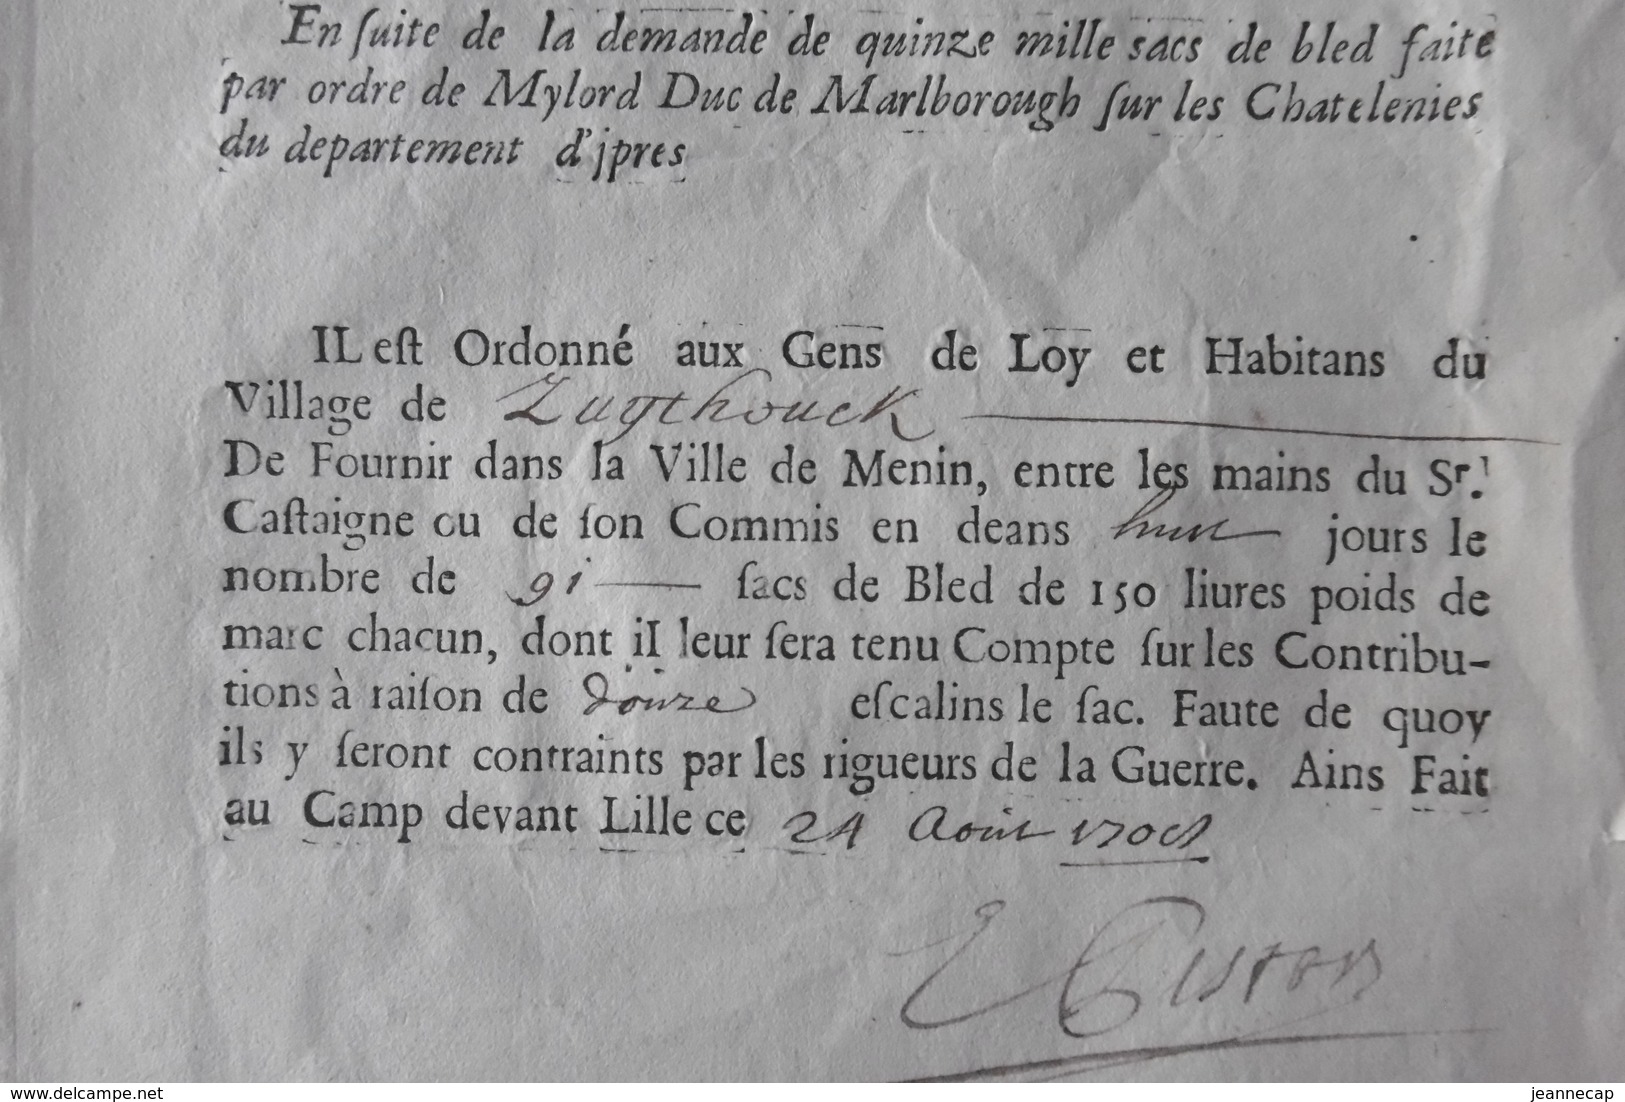 En ſuite de la demande de quinze mille sacs de bled faite
par ordre de Mylord Duc de Marlborough ſur les Chatelenies
du departement d'jpres
IL eſt Ordonné aux Gens de Loy et Habitans du
Village de Zuythouck
De Fournir dans la Ville de Menin, entre les mains du Sr.
Caſtaigne ou de ſon Commis en deans huit jours le
nombre de 91 ſacs de Bled de 150 liures poids de
marc chacun, dont il leur ſera tenu Compte ſur les Contribu-
tions à raiſon de douze eſcalins le ſac. Faute de quoy
ils y ſeront contraints par les rigueurs de la Guerre. Ains Fait
au Camp devant Lille ce 24 Aoüt 1708
Pistor
delcampe.net
jeannecap